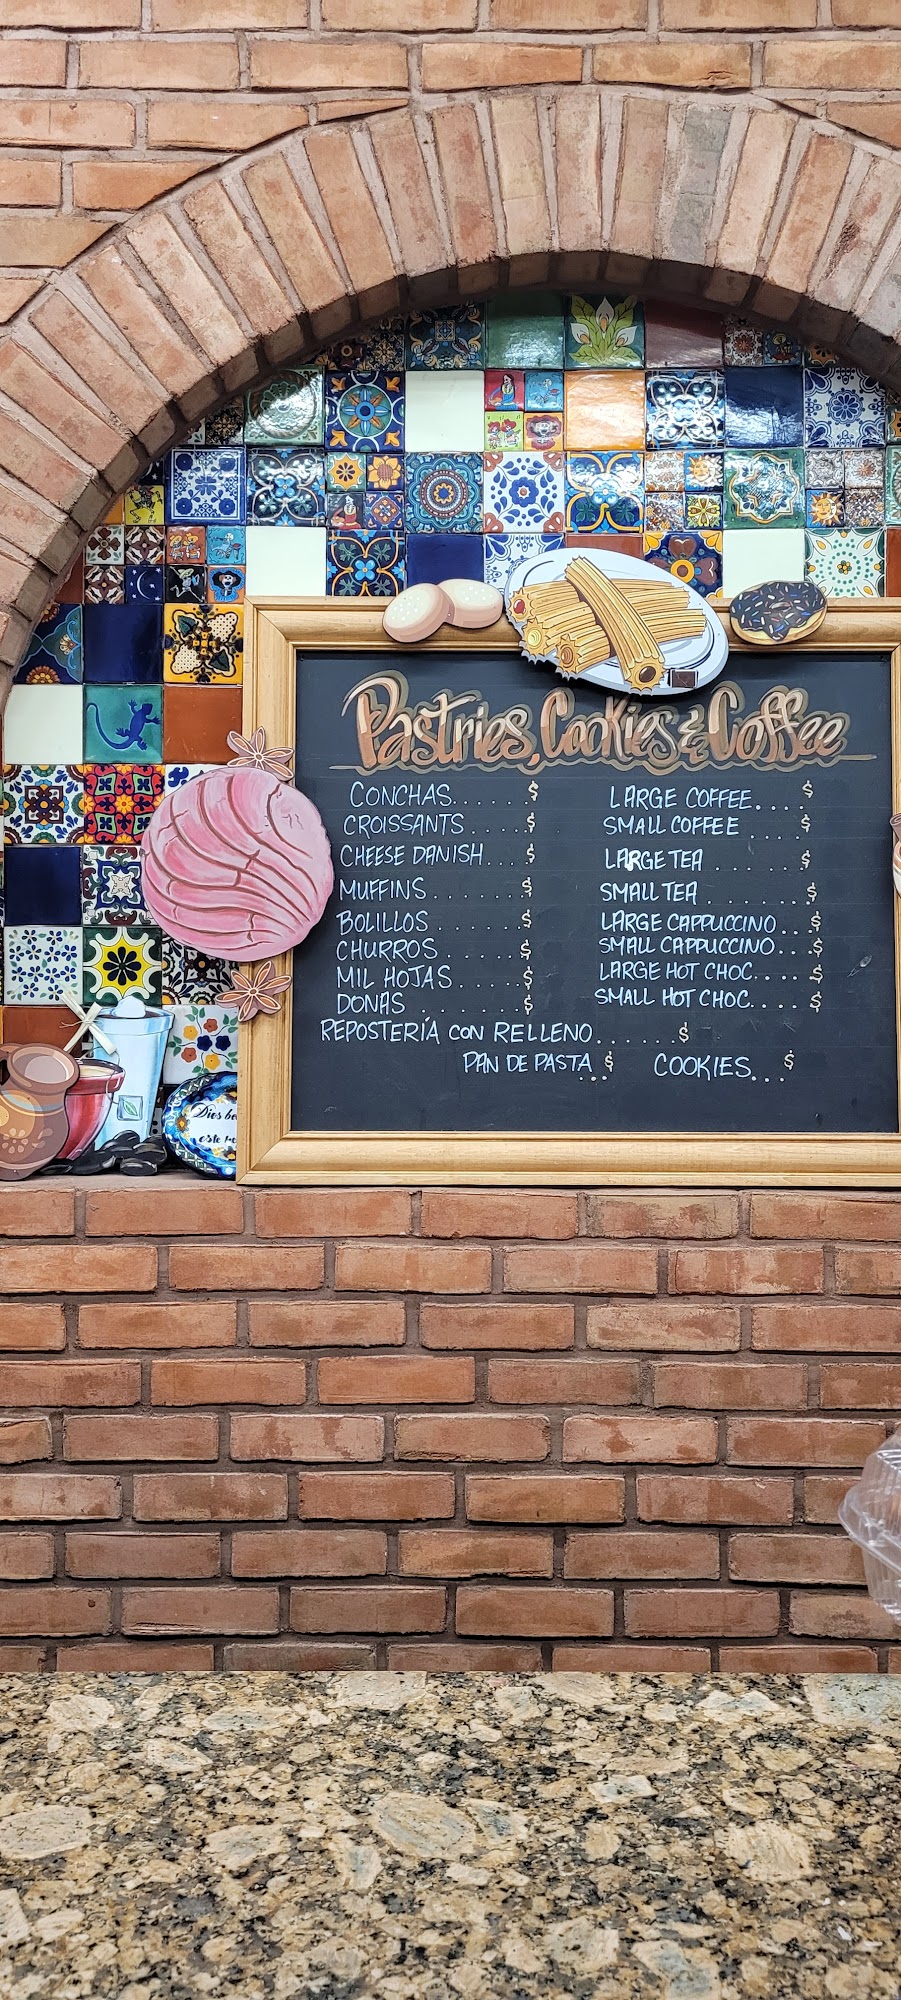 Pastries, Cookies & Coffee
CONCHAS.......$
CROISSANTS.....$
CHEESE DANISH....$
MUFFINS.......$
BOLILLOS.......$
CHURROS......$
MIL HOJAS.....$
DONAS.......$
LARGE COFFEE....$
SMALL COFFEE....$
LARGE TEA......$
SMALL TEA......$
LARGE CAPPUCCINO...$
SMALL CAPPUCCINO...$
LARGE HOT CHOC....$
SMALL HOT CHOC....$
REPOSTERÍA CON RELLENO......$
PAN DE PASTA...$ COOKIES...$
Dios
este